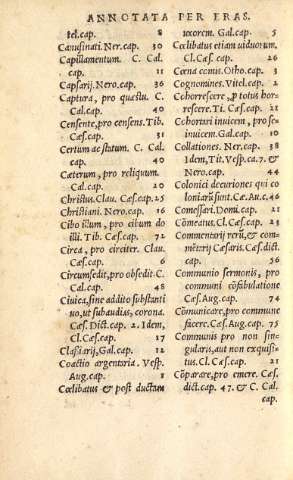 ANNOTATA PER ERAS.
tel.cap. 8
Canusinati. Ner.cap. 30
Capillamentum. C. Cal.
cap. 11
Capsarij. Nero.cap. 36
Captura, pro quæstu. C.
Cal.cap. 40
Censente, pro censens. Tib.
Cæs.cap. 31
Certum ac statum. C. Cal.
cap. 40
Cæterum, pro reliquum
Cal.cap. 20
Christus. Clau. Cæs.cap. 25
Christiani. Nero.cap. 16
Cibo illum, pro cibum do
illi. Tib. Cæs.cap. 44
Circa, pro circiter. Clau.
Cæs.cap. 6
Circumsedit, pro obsedit. C.
Cal.cap. 48
Ciuica, sine addito substanti
uo, ut subaudias, corona.
Cæs. Dict.cap. 2. Idem,
Cl. Cæs.cap. 17
Classiarij, Gal.cap. 12
Coactio argentaria. Vesp.
Aug.cap. 1
Cœlibatus & post ductam
uxorem. Gal.cap. 5
Cœlibatus etiam uiduorum.
Cl. Cæs.cap. 26
Cœna conus. Otho.cap. 3
Cognomines. Vitel.cap. 2
Cohorrescere, p totus hor
rescere. Ti. Cæs.cap. 21
Cohortari inuicem, pro se
inuicem. Gal.cap. 10
Collationes. Ner.cap. 38
Idem, Tit. Vesp. ca. 7. &
Nero.cap. 44
Colonici decuriones qui co
loniarū sunt. Cæ. Au. c. 46
Comessari. Domi.cap. 21
Cōmeatus. Cl. Cæs.cap. 23
Commentarij rerū, & com
mētarij Cæsaris. Cæs. dict.
cap. 56
Communio sermonis, pro
communi cōfabulatione
Cæs. Aug.cap. 74
Cōmunicare, pro commune
facere. Cæs. Aug.cap. 75
Communis pro non sin
gularis, aut non exquisi
tus. Cl. Cæs.cap. 21
Cōparare, pro emere. Cæs.
dict.cap. 47. & C. Cal.
cap.